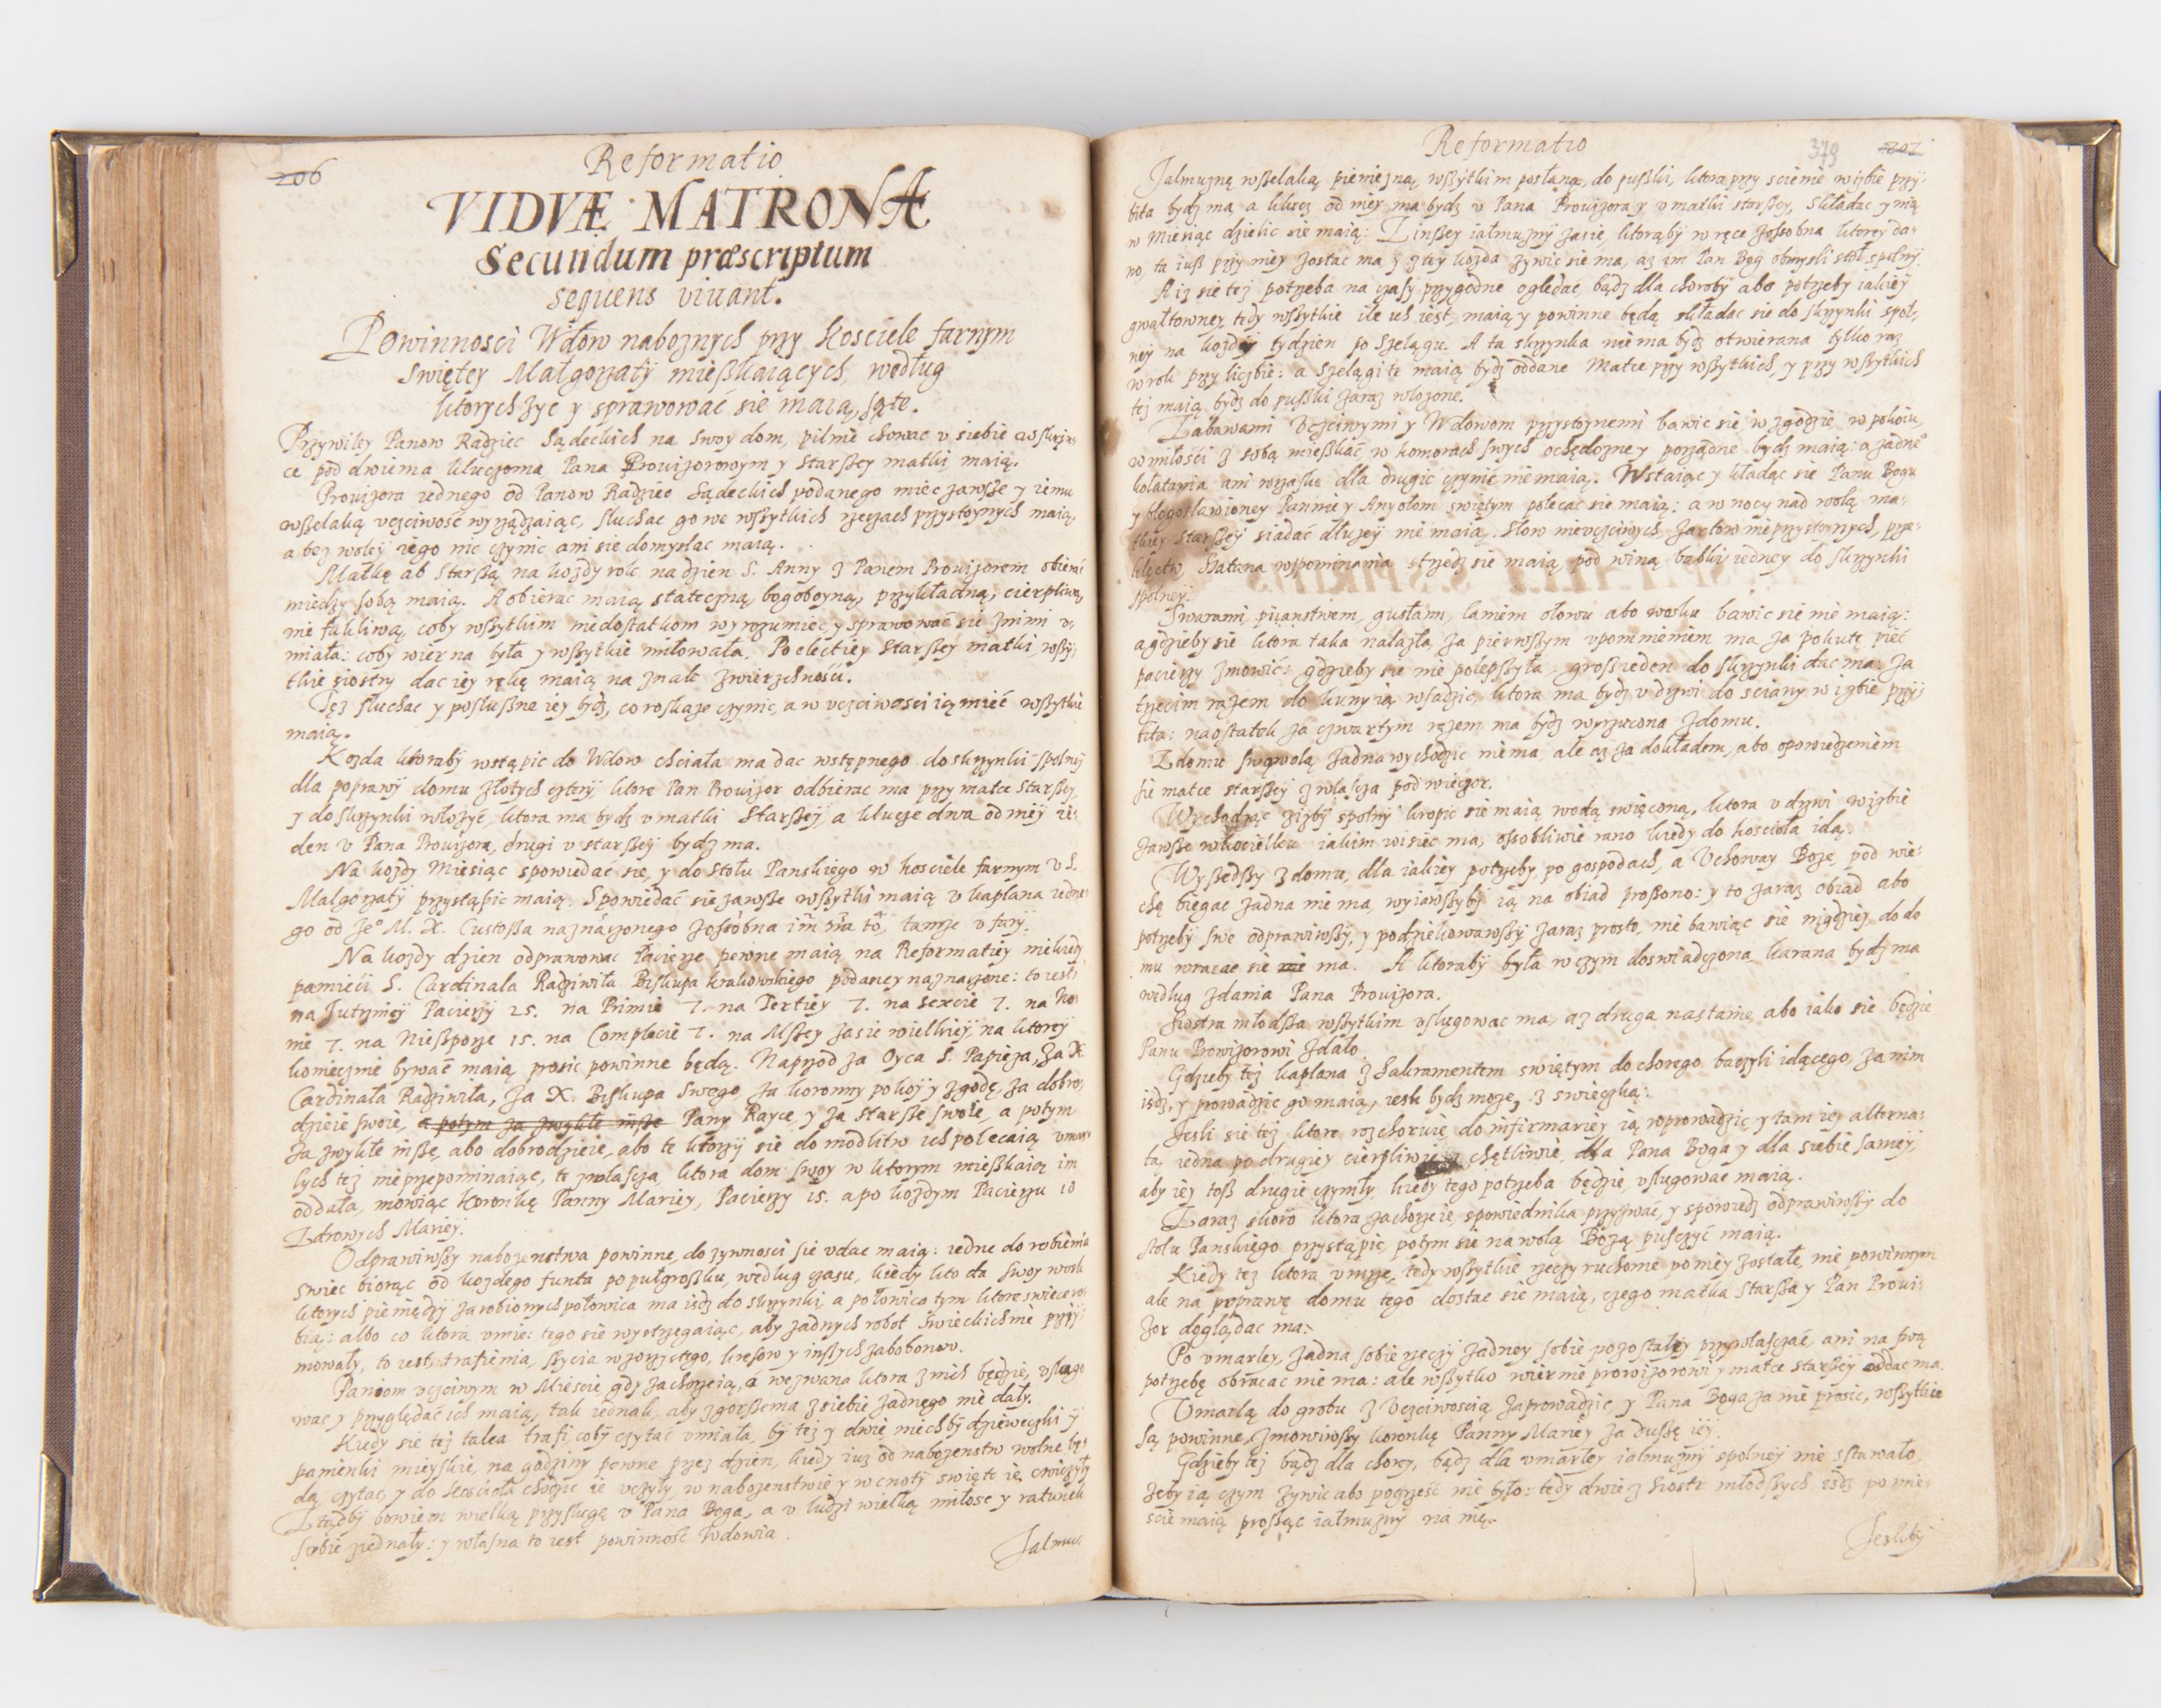 206
Reformatio
VIDVÆ MATRONÆ
Secundum præscriptum
sequens viuant.
Powinnosci Wdow naboznych przy kosciele farnym
Swiętey Małgorzaty mießkaiących, według
ktorych zyc y sprawować sie maią, są te.
Przywiley Panow Radziec Sądeckich na swoy dom, pilnie chowac v siebie w skrzyn,
ce pod dwiema kluczoma Pana Prouizorowym y Starßey matki maią.
Prouizora iednego od Panow Radziec Sądeckich podanego miec zawsze y iemu
wßelaką vczciwość wyrządzaiąc, słuchac go we wßytkich rzeczach przystoynych maią,
a bez woley iego nic czynic ani sie domyslac maią.
Matkę ab Starßą na kożdy rok na dzien S. Anny z Panem Prouizorem obierac
miedzy sobą maią. A obierac maią stateczną, bogoboyną, przykładną, cierpliwą,
nie fukliwą, coby wßytkim niedostatkom wyrozumiec y sprawować sie z nimi v,
miała: coby wierna była y wßytkie miłowała. Po electiey Starßey matki, wßy,
tkie siostry dac iey rękę maią na znak zwierzchności.
Tęz słuchac y posłußne iey bydz, co roskaze czynic, a w vczciwosci ią mieć wßytkie
maią.
Kozda ktoraby wstąpic do Wdow chciała ma dac wstępnego do skrzynki spolny
dla poprawy domu złotych cztery, ktore Pan Prouizor odbierac ma przy matce Starßey,
y do skrzynki włożyć, ktora ma bydz v matki Starßey, a klucze dwa od niey ie,
den v Pana Prouizora, drugi v starßey bydz ma.
Na kożdy Miesiąc spowiedać sie, y do Stołu Panskiego w kosciele farnym v S.
Małgorzaty przystąpic maią. Spowiedać sie zawsze wßytki maią v kaplana iedne
go od Je° M. X. Custoßa naznáczonego zossobna tamze v fary.
Na kożdy dzien odprawowac Pacierze pewne maią na Reformatiey niekiedy
pamięci S. Cardinała Radziwiła Biskupa krakowskiego podaney naznaczone: to iest,
na Jutrzniey Pacierzy 25. na Primie 7. na Tertiey 7. na sexcie 7. na No,
nie 7. na Nießporze 15. na Complecie 7. na Mßey zasie wielkiey na ktorey
koniecznie bywać maią prosic powinne będą. Naprzod za Oyca S. Papieza, Za X
Cardinała Radziwiła, Za X. Biskupa Swego, za koronny pokoy y zgodę, za dobro,
dzieie swoie, a potym za zwykłe insze Pany Rayce y za starsze swoie, a potym
za zwykłe inße, abo dobrodzieie, abo te ktorzy sie do modlitw ich polecaią vmar
łych tez nieprzepominaiąc, te zwłascza, ktora dom swoy w ktorym mießkaią im
oddała, mowiąc koronkę Panny Mariey, Pacierzy 15. a po kożdym Pacierzu 10
Zdrowych Mariey.
Odprawiwßy nabozenstwa powinne, do zywnosci sie vdac maią: iedne do robienia
swiec biorąc od kozdego funta po pułgroßku, według czasu, kiedy kto da swoy wosk
ktorych pieniędzy zarobionych połowica ma isdz do skrzynki, a połowica tym ktore swiece ro
bią: albo co ktora vmie: tego sie wystrzegaiąc, aby zadnych robot swieckich nie przyi,
mowały, to iest, trafienia, ßycia wzorzystego, kresow y inßych zabobonow.
Paniom vczciwym w Miescie gdy zachorzeią, á wezwana ktora z nich będzie, vsługo
wac y przyglądać ich maią, tak iednak, aby zgorßenia z siebie zadnego nie dały.
Kiedy sie tez taka trafi, coby czytać vmiała, by tez y dwie niechby dzieweczki y
panienki mieyskie, na godziny pewne przez dzien, kiedy iuz od nabozenstw wolne bę,
dą, czytac, y do kościoła chodzic ie vczyły, w nabozenstwie y w cnoty swięte ie cwiczyły
Ztądby bowiem wielką przysługę v Pana Boga, a v ludzi wielką miłosc y ratunek
sobie ziednały: y własna to iest powinność wdowia.
Jalmu,
Reformatio
379
207
Jalmuznę wßelaką pieniężną, wßytkim posłaną, do pußki, ktora przy scienie w izbie przy,
bita bydz ma, a klucz od niey ma bydz v Pana Prouizora y v matki starßey, składac y nią
w Miesiąc dzielic sie maią: Z inßey iałmuzny zasie, ktorąby w ręce zossobna ktorey da,
no, ta iuß przy niey zostac ma, y z tey kozda zywic sie ma, az im Pan Bog obmysli stoł spolny.
A iz sie tez potrzeba na czasy przygodne oglądać, bądz dla choroby abo potrzeby iakiey
gwałtowney, tedy wßytkie ile ich iest, maią y powinne będą składac sie do skrzynki spol,
ney na kozdy tydzien po Szelągu. A ta skrzynka nie ma bydz otwierana tylko raz
w rok przy liczbie: a Szelągi te maią bydz oddane Matce przy wßytkich, y przy wßytkich
tez maią bydz do pußki zaraz włozone.
Zabawami Vczciwymi y Wdowom przystoynemi bawic sie w zgodzie, w pokoiu,
w miłości z sobą mießkać, w komorach swych ochędozne y porządne bydz maią: a zadne°
kołatania ani wrzasku dla drugich czynic nie maią. Wstaiąc y kładąc sie Panu Bogu
y błogosławioney Pannie y Anyołom swiętym polecac sie maią: a w nocy nad wolą ma,
tkiey starßey siadać dłuzey nie maią. Słow nievczciwych, zartow nieprzystoynych, prze,
klęctw, ßatana wspominania strzedz sie maią, pod winą babki iedney do skrzynki
spolney.
Swarami, piianstwem, gusłami, laniem ołowu abo wosku bawic sie nie maią:
a gdzieby sie ktora taka nalazła, za pierwßym vpomnieniem ma za pokutę pięć
pacierzy zmowić: gdzieby sie nie polepßyła, groß ieden do skrzynki dac ma: za
trzecim razem do kuny ią wsadzic, ktora ma bydz v drzwi do sciany w izbie przy,
bita: na ostatek za czwartym razem ma bydz wyrzucona z domu.
Z domu swąwolą zadna wychodzic nie ma, ale az za dokładem, abo opowiedzeniem
sie matce starßey zwłascza pod wieczor.
Wychodząc z izby spolny kropic sie maią wodą swięconą, ktora v drzwi w izbie
zawsze w kociełku iakim wisiec ma, osobliwie rano kiedy do koscioła idą.
Wyßedßy z domu, dla iakiey potrzeby, po gospodach, a Vchoway Boze, pod wie,
chę biegac zadna nie ma, wyiawßyby ią na obiad proßono: y to zaraz obiad abo
potrzeby swe odprawiwßy, y podziękowawßy zaraz prosto, nie bawiąc sie nigdziey, do do
mu wracac sie ma. A ktoraby była w czym doswiadczona, karana bydz ma
według zdania Pana Prouizora.
Siostra młodßa wßytkim vsługowac ma, az druga nastanie, abo iako sie będzie
Panu Prowizorowi zdało.
Gdzieby tez kaplana z Sakramentem swiętym do chorego baczyli idącego, za nim
isdz, y prowadzic go maią, iesli bydz moze, z swieczką.
Jesli sie tez ktora rozchoruie, do infirmariey ią wprowadzic, y tam iey alterna,
tą iedna po drugiey cierpliwie y chętliwie, dla Pana Boga y dla siebie samey,
aby iey toß drugie czyniły, kiedy tego potrzeba będzie, vsługowac maią.
Zaraz skoro ktora zachorzeie, spowiednika przyzwać, y spowiedz odprawiwßy do
stołu Panskiego przystąpic, potym sie na wolą Bożą puscyć maią.
Kiedy tez ktora vmrze, tedy wßytkie rzeczy ruchome po niey zostałe, nie powinnym
ale na poprawę domu tego dostac sie maią, czego matka Starßa y Pan Proui,
zor doglądac ma.
Po vmarley, zadna sobie rzeczy zadney sobie pozostałey przywłasczać, ani na swą
potrzebę obracac nie ma: ale wßytko wiernie prowizorowi y matce starßey oddac ma.
Vmarłą do grobu z Vczciwoscią zaprowadzic, y Pana Boga za nie prosic, wßytkie
są powinne, zmowiwßy koronkę Panny Mariey za dußę iey.
Gdzieby tez bądz dla chorey, bądz dla vmarłey iałmuzny spolney nie sstawało
zeby ią czym zywic abo pogrześć nie było: tedy dwie z Siostr młodßych isdz po mie,
scie maią proßąc iałmuzny na nię.
Jesliby